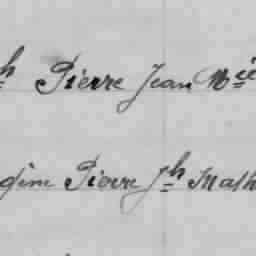 h Pierre Jean Mie
gine Pierre Jh Math